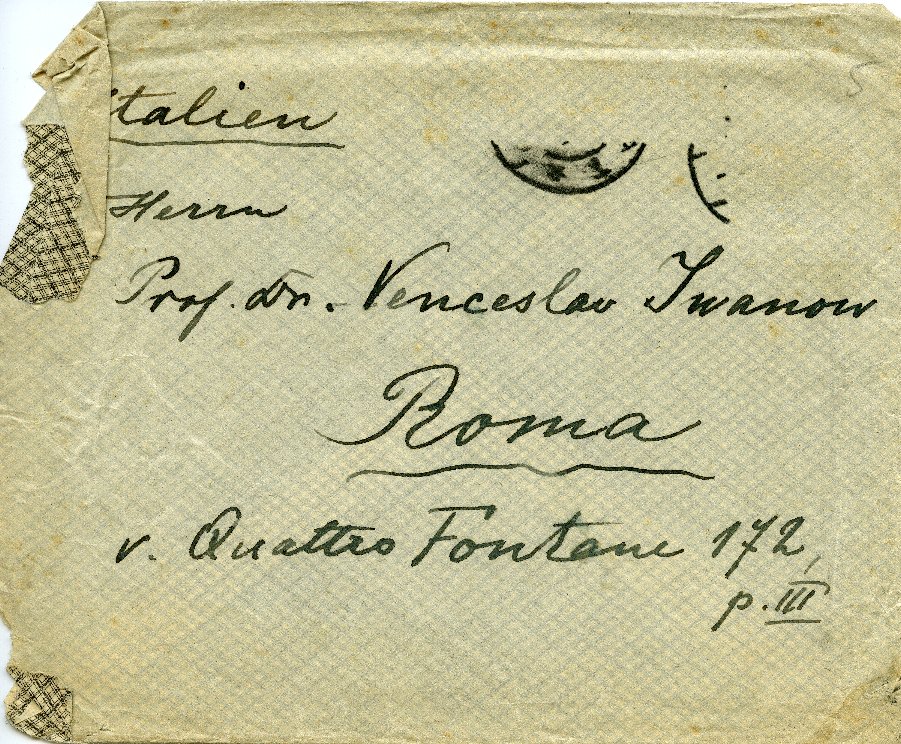 Italien
Herrn
Prof. Dr. Venceslav Iwanow
Roma
v. Quattro Fontane 172,
p. III